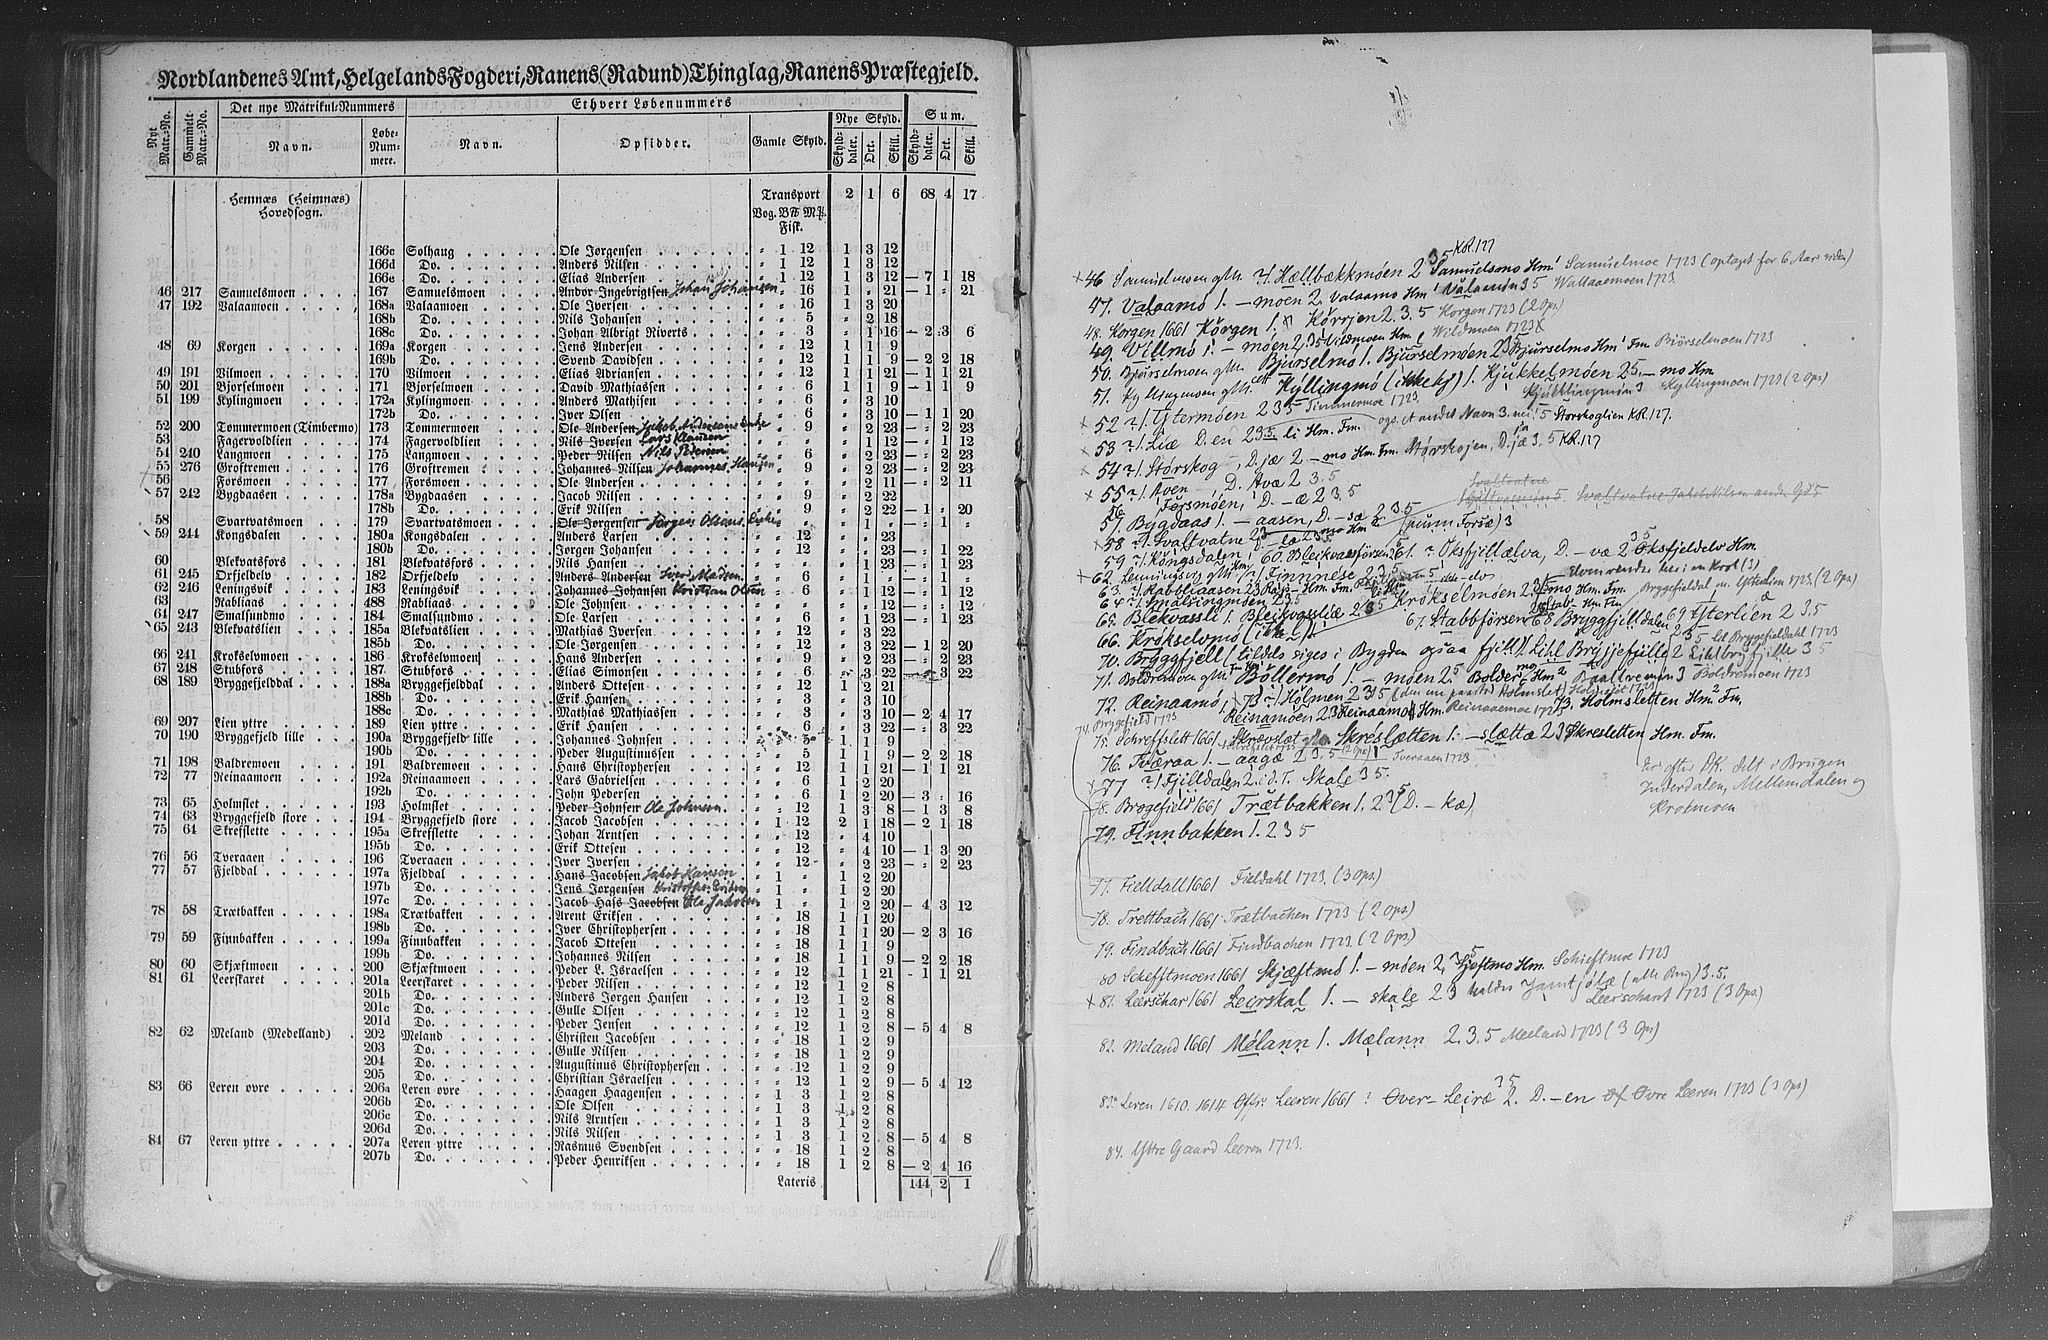 Nordlandenes Amt, Helgelands Fogderi, Ranens (Radund) Thinglag, Ranens Præstegjeld.
Det nye Matrikul-Nummers Ethvert Løbenummers
Nyt Matr.-No. Gammelt Matr.-No. Navn. Løbe-Nummere. Navn. Opsidder. Gamle Skyld. Nye Skyld. Skylddaler. Ort. Skill. Sum. Skylddaler. Ort. Skill.
Hemnæs (Heimnæs) Hovedsogn. Transport 2 1 6 68 4 17
Vog. B℔ M℔ Fisk.
166c Solhaug Ole Jørgensen " 1 12 1 3 12
166d Do. Anders Nilsen " 1 12 1 3 12
166e Do. Elias Andersen " 1 12 1 3 12 — 7 1 18
46 217 Samuelsmoen 167 Samuelsmoen Andor Ingebrigtsen Johan Johansen " " 16 1 " 21 — 1 " 21
47 192 Valaamoen 168a Valaamoen Ole Iversen " " 16 1 3 20
168b Do. Nils Johansen " " 5 " 2 18
168c Do. Johan Albrigt Riverts " " 3 " 1 16 — 2 3 6
48 69 Korgen 169a Korgen Jens Andersen " " 12 1 1 9
169b Do. Svend Davidsen " " 12 1 1 9 — 2 2 18
49 191 Vilmoen 170 Vilmoen Elias Adriansen " " 12 1 1 21 — 1 1 21
50 201 Bjorselmoen 171 Bjorselmoen David Mathiassen " " 6 1 1 9 — 1 1 9
51 199 Kylingmoen 172a Kylingmoen Anders Mathisen " " 6 " 3 10
172b Do. Iver Olsen " " 6 " 3 10 — 1 1 20
52 200 Tommermoen (Timbermo) 173 Tommermoen Ole Andersen " " 9 " 2 23 — " 2 23
53 Fagervoldlien 174 Fagervoldlien Nils Iversen Lars Klausen " " " " 1 12 — " 1 12
54 240 Langmoen 175 Langmoen Peder Nilsen Nils Pedersen " " 6 " 2 23 — " 2 23
55 276 Groftremen 176 Groftremen Johannes Nilsen Johannes Hansen " " 9 " 2 23 — " 2 23
56 Forsmoen 177 Forsmoen Ole Andersen " " " " 2 11 — " 2 11
57 242 Bygdaasen 178a Bygdaasen Jacob Nilsen " " 9 " 2 22
178b Do. Erik Nilsen " " 9 " 2 22 — 1 " 20
58 Svartvatsmoen 179 Svartvatsmoen Ole Jørgensen Jørgen Olsens " " " " 1 " — " 1 "
59 244 Kongsdalen 180a Kongsdalen Anders Larsen " " 12 " " 23
180b Do. Jørgen Johansen " " 12 " " 23 — " 1 22
60 Blekvatsfors 181 Blekvatsfors Nils Hansen " " " " 1 23 — " 1 23
61 245 Orfjeldelv 182 Orfjeldelv Anders Andersen Sivert Madsen " " 6 " 1 " — " 1 "
62 246 Leningsvik 183 Leningsvik Johannes Johansen Kristian Olsen " " 6 " 1 12 — " 1 12
63 Rabliaas 488 Rabliaas Ole Johnsen " " " " " 12 — " " 12
64 247 Smalsundmo 184 Smalsundmo Ole Larsen " " 6 " 1 23 — " 1 23
65 243 Blekvatslien 185a Blekvatslien Mathias Iversen " " 12 " 3 22
185b Do. Ole Jørgensen " " 12 " 3 22 — 1 2 20
66 241 Krokselvmoen 186 Krokselvmoen Hans Andersen " " 9 " 2 23 — " 2 23
67 248 Stubfors 187 Stubfors Elias Simonsen " " 6 " 3 22 — " 3 22
68 189 Bryggefjelddal 188a Bryggefjelddal Anders Ottesen " " 12 1 2 21
188b Do. Erik Hansen " " 3 " 3 10
188c Do. Mathias Mathiassen " " 3 " 3 10 — 2 4 17
69 207 Lien yttre 189 Lien yttre Erik Hansen " " 6 " 3 22 — " 3 22
70 190 Bryggefjeld lille 190a Bryggefjeld lille Johannes Johnsen " " 5 1 1 9
190b Do. Peder Augustinussen " " 5 1 1 9 — 2 2 18
71 198 Baldremoen 191 Baldremoen Hans Christophersen " " 12 1 1 21 — 1 1 21
72 77 Reinaamoen 192a Reinaamoen Lars Gabrielsen " " 6 1 2 20
192b Do. John Pedersen " " 6 1 2 20 — 3 " 16
73 65 Holmslet 193 Holmslet Peder Johnsen Ole Johnsen " " 12 1 3 8 — 1 3 8
74 63 Bryggefjeld store 194 Bryggefjeld store Jacob Jacobsen " 1 12 2 1 18 — 2 1 18
75 64 Skrefslette 195a Skrefslette Johan Arntsen " " 12 " 4 10
195b Do. Erik Ottesen " " 12 " 4 10 — 1 3 20
76 56 Tveraaen 196 Tveraaen Iver Iversen " " 12 " 2 23 — " 2 23
77 57 Fjelddal 197a Fjelddal Hans Jacobsen Jakob Hansen " 1 " 1 2 20
197b Do. Jens Jørgensen " 1 " 1 2 20
197c Do. Jacob Hass Jacobsen Ole Jakobsen " 1 " 1 2 20 — 4 3 12
78 58 Trætbakken 198a Trætbakken Arent Eriksen " " 18 1 1 20
198b Do. Iver Christophersen " " 18 1 1 20 — 2 3 16
79 59 Finnbakken 199a Finnbakken Jacob Ottesen " " 18 1 1 9
199b Do. Johannes Nilsen " " 18 1 1 9 — 2 2 18
80 60 Skjæftmoen 200 Skjæftmoen Peder L. Israelsen " " 12 1 1 21 — 1 1 21
81 61 Leerskaret 201a Leerskaret Peder Nilsen " " 12 1 2 8
201b Do. Anders Jørgen Hansen " " 12 1 2 8
201c Do. Gulle Olsen " " 12 1 2 8
201d Do. Peder Jensen " " 12 1 2 8 — 5 4 8
82 62 Meland (Medelland) 202 Meland Christen Jacobsen " " 18 1 2 9
203 Do. Gulle Nilsen " " 18 1 2 9
204 Do. Augustinus Christophersen " " 12 1 2 9
205 Do. Christian Israelsen " " 12 1 2 9 — 5 4 12
83 66 Leren øvre 206a Leren øvre Haagen Haagensen " 1 3 1 2 8
206b Do. Ole Olsen " 1 3 1 2 8
206c Do. Nils Arntsen " 1 3 1 2 8
206d Do. Nils Nilsen " 1 3 1 2 8 — 5 4 8
84 67 Leren yttre 207a Leren yttre Rasmus Svendsen " " 18 1 2 8
207b Do. Peder Henriksen " " 18 1 2 8 — 2 4 16
Lateris 144 2 1
KR. 127
46 Samuelsmoen gMt. Hællbækkmoen 2 Samuelsmo Hm Samuelmoe 1723 (optaget for 6 Aar siden)
47. Valaamo 1. — moen 2. Valaamo Hm Valaamoen 3 5 Wallaaemoen 1723.
48. Korgen 1661 Körgen 1. Körrjen 2.3.5 Korgen 1723 (2 Ops)
49. Villmo 1. — moen 2.3.5 Vildmoen Hm Wildmoen 1723
50. Bjurselmoen gMt. Bjurselmo 1. Bjurselmöen 2 3 Bjurselmo Hm Fm Biörselmoen 1723
51. Kyllingmoen gMt. Kyllingmo (ikke kj) 1. Kjukkelmoen 2 5. — mo Hm Kyllingmoen 1723 (2 Ops)
52 ? / Ytermoen 2 3 5 Timmermoe 1723.
53 ? / Liæ D. en 2 3 5. li Hm. Fm. ogs. et andet Navn 3. 5 Storskoglien KR. 127.
54 ? / Storskog, D. jæ 2 — mo Hm. Fm. Størskojen, D. jæ 3. 5 KR. 127
55 ? / Aven, D. Avæ 2 3. 5
56 Forsmoen, D. — æ 2 3. 5
57. Bygdaas 1. — aasen, D. — sæ 2 3 5
58 Svaltvatne 2 3
59 ? / Kongsdalen 60. Bleikvassforsen 61. ? Oksfjillælva, D. — væ 2 Oksfjeldelv Hm.
62. Lenningsvig gMt. ? / Finnnese 2 3. 5
63. ? / Rabbliaasen 2 3
64 ? / Smalsingmoen 2 3 5 Krokselmoen 2 3
65. Blekvassli 1. Bleikvassliæ 2 3 5 67. Stabbforsen 68 Bryggfjilldalen 69 Ysterlien 2 3 5
66. Krokselvmo (ikke 1)
70. Bryggfjell (tildels siges i Bygden ogsaa fjill) 1. Lihl Bryjjefjille 2 Lihlbrygfjille 3 5
71. Boldremoen gMt. Böllermo 1. — möen 2. 5 Bolder mo Hm 3 Boldremoen 1723
72. Reinaamo, 73 ? / Hölmen 2 3 5 73. Holmsletten Hm 2 Fm.
74. Bryggfield 1723. Reinamöen 2 3 Reinaamo Hm. Reinaaemoe 1723
75. Schreffslett 1661 Skrevslæt Skreslætten 1. — slætta 2 3 Skresletten Hm. Fm.
76. Tværaa 1. — aagæ 2. 3. 5 (2 Ops) Tveraaen 1723
77 ? / Fjilldalen 2 i. d. T. Skale 3 5.
78. Bragefield 1661 Trætbakken 1. 2 3 5 (D. — kæ)
79. Finnbakken 1. 2 3 5
er efter DK. delt i Brugen
Inderdalen, Mellemdalen og
Krokmoen
77. Fielldall 1661 Fieldahl 1723. (3 Ops.)
78. Trettbach 1661 Trætbachen 1723 (2 Ops.)
79. Findbach 1661 Findbachen 1723. (2 Ops.)
80 Schefftmoen 1661 Skjæftmo 1. — möen 2. Skjeftmo Hm. Schieftmoe 1723
81. Leerschar 1661 Leirskal 1. — skale 2 3 Leerschart 1723 (3 Ops.)
82. Meland 1661 Mélann 1. Mælann 2. 3. 5 Meeland 1723 (3 Ops)
83. Leren 1610. 1614 Offr. Leeren 1661 ? Over-Leiræ 2. D. — en Øvre Leeren 1723 (3 Ops)
84. Yttre Gaard Leeren 1723.